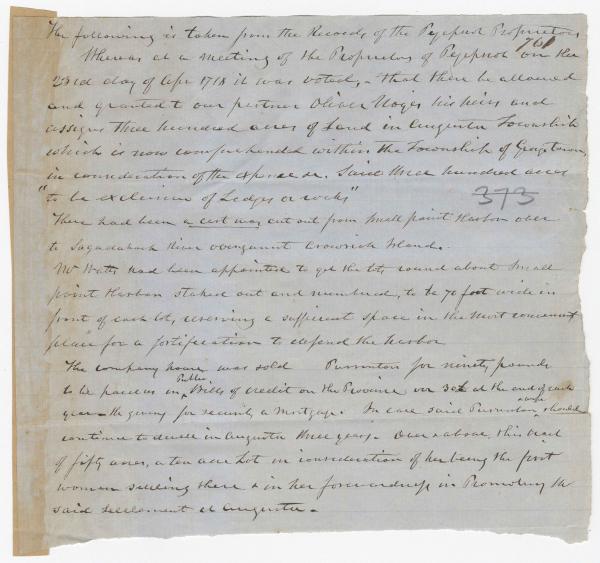 The following is taken from the Records of the Pejepscot Proprietors
761
Whereas at a meeting of the Proprietors of Pejepscot on the
23rd day of Apr 1718 it was voted, - that there be allowed
and granted to our partner Oliver Noyes his heirs and
assigns three hundred acres of Land in Augusta Township
which is now comprehended within the Township of Georgetown,
in consideration of the expense &c. Said three hundred acres
"to be exclusive of Ledges or rocks"
373
There had been a cart way cut out from Small point Harbor over
to Sagadahock River over against Arowsick Island.
Mr Watts had been appointed to get the lots round about Small
point Harbor staked out and numbered, to be 70 foot wide in
front of each lot, reserving a sufficient space in the most convenient
place for a fortification to defend the harbor
The company house was sold Purrinton for ninety pounds
to be paid in Public Bills of credit on the Province or 30£ at the end of each
year - He giving for security a Mortgage. In case said Purrinton &amp; wife should
continue to dwell in Augusta three years. Over &amp; above, this tract
of fifty acres, a ten acre Lot in consideration of her being the first
woman settling there &amp; in her forwardness in Promoting the
said settlement at Augusta.